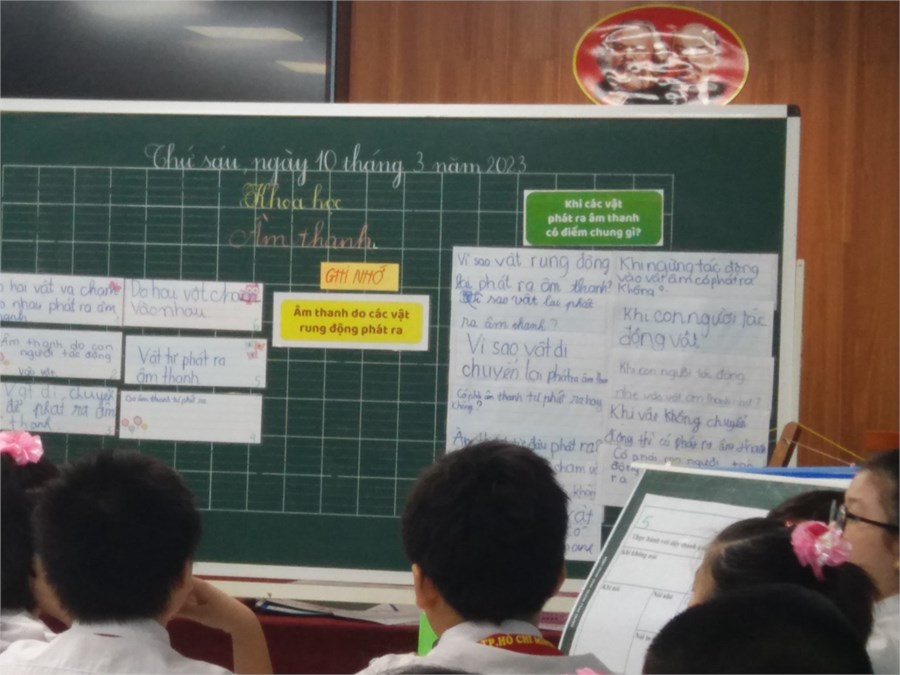 Thứ sáu, ngày 10 tháng 3 năm 2023
Khoa học
Âm thanh
Khi các vật
phát ra âm thanh
có điểm chung gì?
GHI NHỚ
Âm thanh do các vật
rung động phát ra
hai vật va chạm
nhau phát ra âm
thanh
Do hai vật chạm
vào nhau
Âm thanh do con
người tác động
vào vật
Vật tự phát ra
âm thanh
5
Vật di chuyển
để phát ra âm
thanh
Do âm thanh tự phát ra
4
Vì sao vật rung động
phát ra âm thanh?
sao vật lại phát
ra âm thanh?
Vì sao vật di
chuyển lại phát ra âm
âm thanh tự phát ra hay
không?
từ đâu phát ra
Khi ngừng tác động
vào vật âm có phát ra
không?
Khi con người tác
động vật
Khi con người tác động
nhẹ vào vật âm thanh
Khi vật không chuyển
động thì có phát ra âm thanh
Có phải con người
động
ra
5
TP.HỒ CHÍ